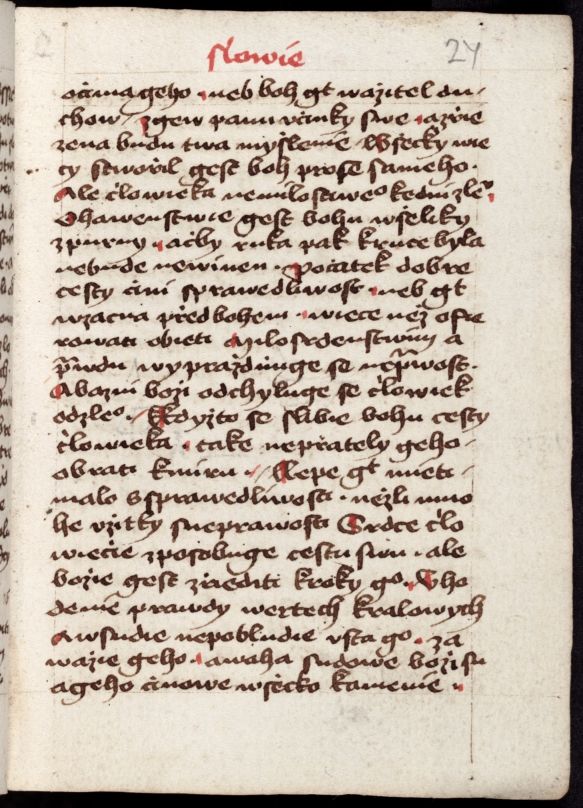 slowie
27
očima geho · neb boh gt wažitel du⸗
chow · zgew panu včinky swe · azrie
zena budu twa myšlenie Wšecky wie
cy stworil gest boh prose sameho ·
Ale člowieka nemilostiweo kedni zleo
Ohawenstwie gest bohu wšeliky
zpurny · ačby ruka pak kruce byla
nebude newinen · Počatek dobre
cesty čini sprawedliwost · neb gt
wzacna předbohem · wiece než ofie
rowati obieti Milosrdenstwim a
pwdu wyprazdnuge se nepwost ·
Abazni boži odchyluge se člowiek
odzleo · Kdyžto se slibie bohu cesty
člowieka · take nepřately geho ·
obrati kmiru · Lepe gt mieti ·
malo ssprawedliwosti · nežli mno
he vžitky sneprawosti Srdce člo
wiecie zposobuge cestu swu · ale
božie gest zriediti kroky go · Vho
denie prawdy wertech kralowych
Awsudie nepobludie vsta go · za
wažie geho · awaha sudowe boži su
ageho činowe wšecko kamenie ·